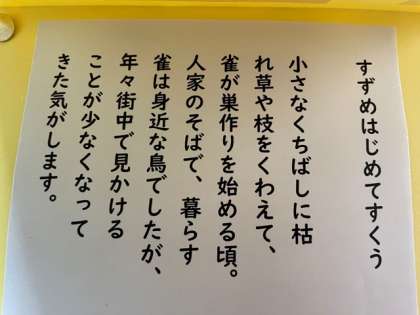 すずめはじめてすくう
小さなくちばしに枯
れ草や枝をくわえて、
雀が巣作りを始める頃。
人家のそばで、暮らす
雀は身近な鳥でしたが、
年々街中で見かける
ことが少なくなって
きた気がします。